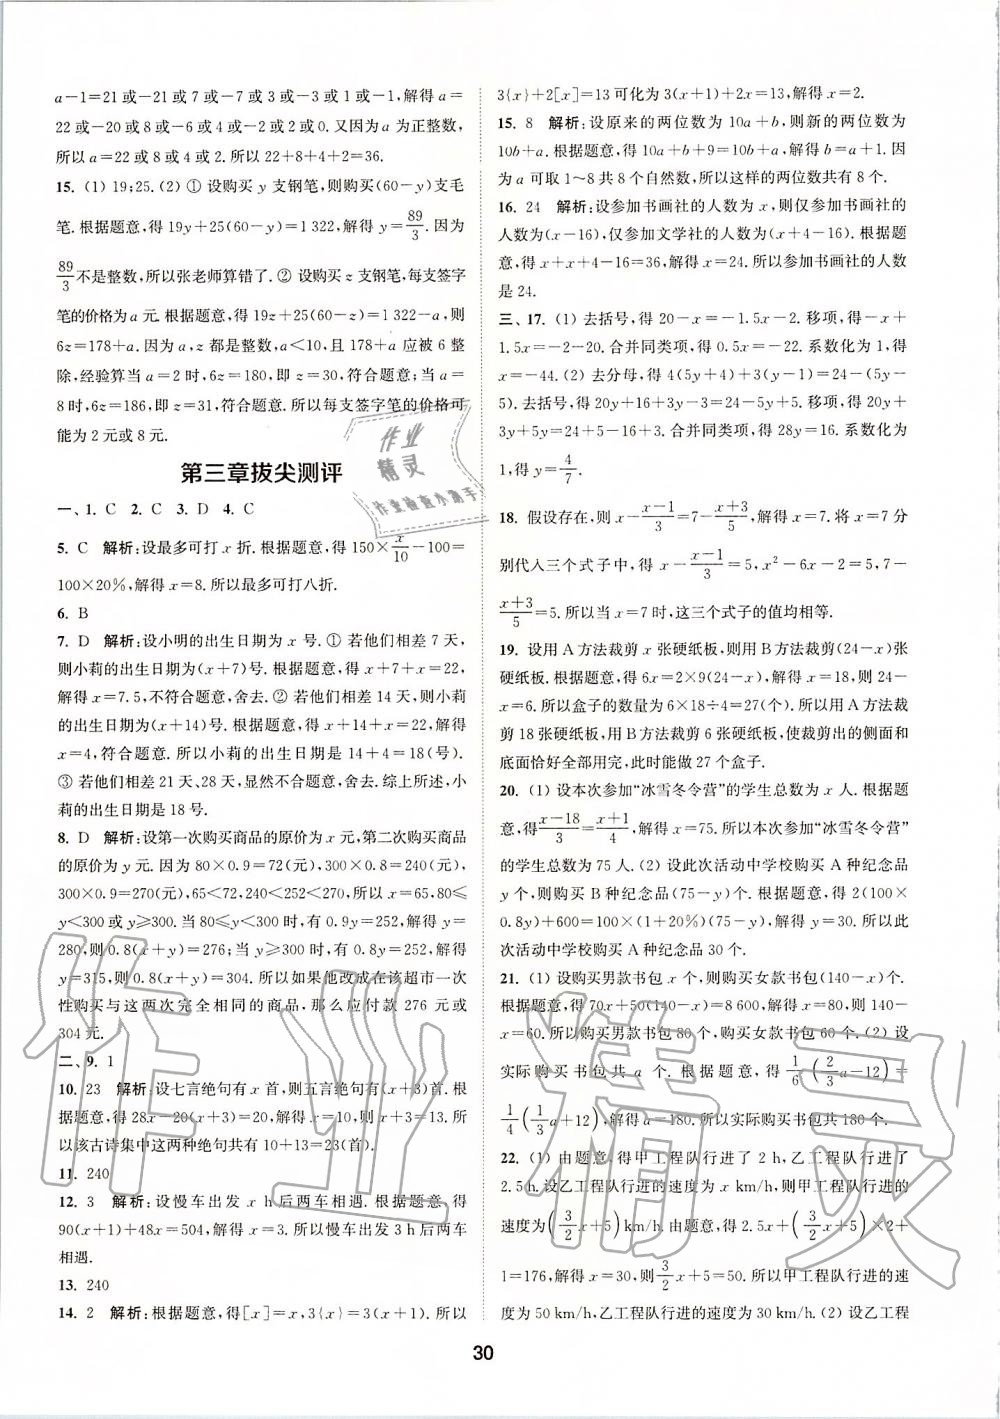 a−1=21或−21或7或−7或3或−3或1或−1,解得a=
22或−20或8或−6或4或−2或2或0.又因为a为正整数,
所以a=22或8或4或2.所以22+8+4+2=36.
15. (1) 19;25.(2) ① 设购买y支钢笔,则购买(60−y)支毛
笔.根据题意,得19y+25(60−y)=1 322,解得y=89/3.因为
89/3不是整数,所以张老师算错了.② 设购买z支钢笔,每支签字
笔的价格为a元.根据题意,得19z+25(60−z)=1 322−a,则
6z=178+a.因为a,z都是整数,a<10,且178+a应被6整
除,经验算当a=2时,6z=180,即z=30,符合题意;当a=
8时,6z=186,即z=31,符合题意.所以每支签字笔的价格可
能为2元或8元.
第三章拔尖测评
一、1. C 2. C 3. D 4. C
5. C 解析:设最多可打x折.根据题意,得150×x/10−100=
100×20%,解得x=8.所以最多可打八折.
6. B
7. D 解析:设小明的出生日期为x号.① 若他们相差7天,
则小莉的出生日期为(x+7)号.根据题意,得x+7+x=22,
解得x=7.5,不符合题意,舍去.② 若他们相差14天,则小莉
的出生日期为(x+14)号.根据题意,得x+14+x=22,解得
x=4,符合题意.所以小莉的出生日期是14+4=18(号).
③ 若他们相差21天、28天,显然不合题意,舍去.综上所述,小
莉的出生日期是18号.
8. D 解析:设第一次购买商品的原价为x元,第二次购买商品
的原价为y元.因为80×0.9=72(元),300×0.8=240(元),
300×0.9=270(元),65<72,240<252<270,所以x=65,80≤
y<300或y≥300.当80≤y<300时,有0.9y=252,解得y=
280,则0.8(x+y)=276;当y≥300时,有0.8y=252,解得
y=315,则0.8(x+y)=304.所以如果他改成在该超市一次
性购买与这两次完全相同的商品,那么应付款276元或
304元.
二、9. 1
10. 23 解析:设七言绝句有x首,则五言绝句有(x+3)首.根
据题意,得28x−20(x+3)=20,解得x=10,则x+3=13.所
以该古诗集中这两种绝句共有10+13=23(首).
11. 240
12. 3 解析:设慢车出发x h后两车相遇.根据题意,得
90(x+1)+48x=504,解得x=3.所以慢车出发3 h后两车
相遇.
13. 240
14. 2 解析:根据题意,得[x]=x,3{x}=3(x+1).所以
3{x}+2[x]=13可化为3(x+1)+2x=13,解得x=2.
15. 8 解析:设原来的两位数为10a+b,则新的两位数为
10b+a.根据题意,得10a+b+9=10b+a,解得b=a+1.因
为a可取1~8共8个自然数,所以这样的两位数共有8个.
16. 24 解析:设参加书画社的人数为x,则仅参加书画社的
人数为(x−16),仅参加文学社的人数为(x+4−16).根据题
意,得x+x+4−16=36,解得x=24.所以参加书画社的人数
是24.
三、17. (1) 去括号,得20−x=−1.5x−2.移项,得−x+
1.5x=−2−20.合并同类项,得0.5x=−22.系数化为1,得
x=−44.(2) 去分母,得4(5y+4)+3(y−1)=24−(5y−
5).去括号,得20y+16+3y−3=24−5y+5.移项,得20y+
3y+5y=24+5−16+3.合并同类项,得28y=16.系数化为
1,得y=4/7.
18. 假设存在,则x−(x−1)/3=7−(x+3)/5,解得x=7.将x=7分
别代入三个式子中,得x−(x−1)/3=5,x²−6x−2=5,7−
(x+3)/5=5.所以当x=7时,这三个式子的值均相等.
19. 设用A方法裁剪x张硬纸板,则用B方法裁剪(24−x)张
硬纸板.根据题意,得6x=2×9(24−x),解得x=18,则24−
x=6.所以盒子的数量为6×18÷4=27(个).所以用A方法裁
剪18张硬纸板,用B方法裁剪6张硬纸板,使裁剪出的侧面和
底面恰好全部用完,此时能做27个盒子.
20. (1) 设本次参加“冰雪冬令营”的学生总数为x人.根据题
意,得(x−18)/3=(x+1)/4,解得x=75.所以本次参加“冰雪冬令营”
的学生总数为75人.(2) 设此次活动中学校购买A种纪念品
y个,则购买B种纪念品(75−y)个.根据题意,得2(100×
0.8y)+600=100×(1+20%)(75−y),解得y=30.所以此
次活动中学校购买A种纪念品30个.
21. (1) 设购买男款书包x个,则购买女款书包(140−x)个.
根据题意,得70x+50(140−x)=8 600,解得x=80,则140−
x=60.所以购买男款书包80个,购买女款书包60个.(2) 设
实际购买书包共a个.根据题意,得1/6(2/3a−12)=
1/4(1/3a+12),解得a=180.所以实际购买书包共180个.
22. (1) 由题意,得甲工程队行进了2 h,乙工程队行进了
2.5 h.设乙工程队行进的速度为x km/h,则甲工程队行进的
速度为(3/2x+5)km/h.由题意,得2.5x+(3/2x+5)×2+
1=176,解得x=30,则3/2x+5=50.所以甲工程队行进的速
度为50 km/h,乙工程队行进的速度为30 km/h.(2) 设乙工程
30
作业
精灵
作业检查小助手
作业精灵